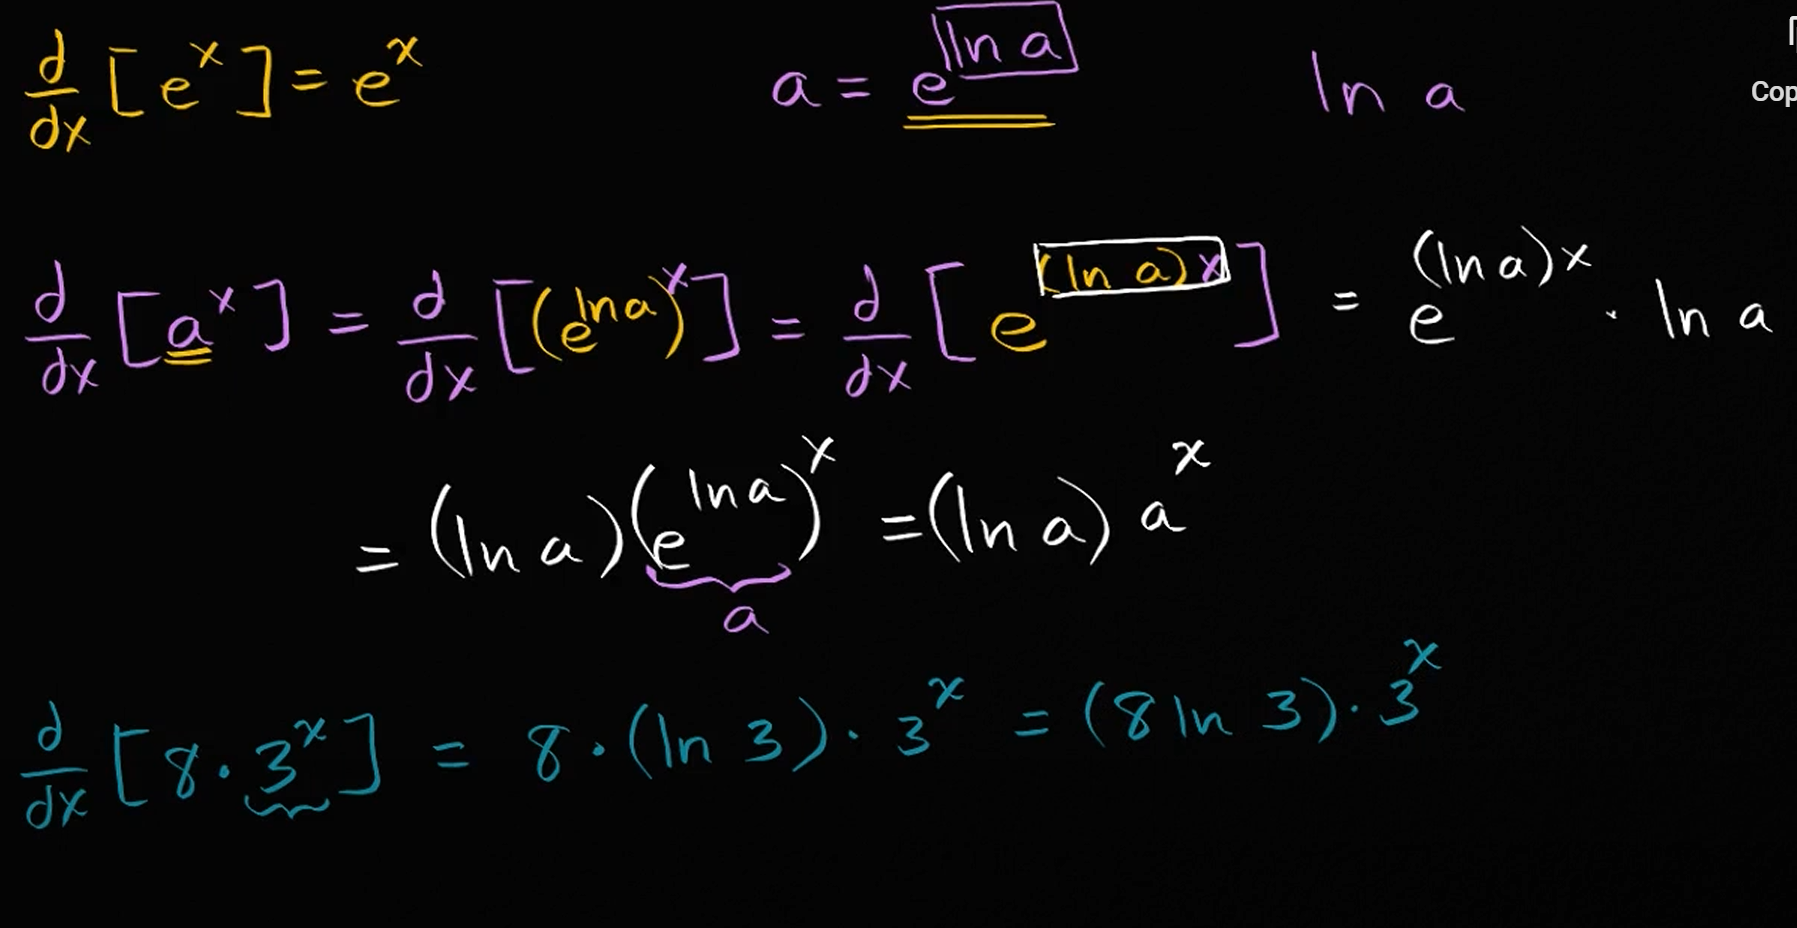 d/dx [e^x] = e^x    a = e^(ln a)    ln a
Cop
d/dx [a^x] = d/dx [(e^(ln a))^x] = d/dx [e^((ln a)x)] = e^((ln a)x) · ln a
= (ln a)(e^(ln a))^x = (ln a) a^x
a
d/dx [8·3^x] = 8·(ln 3)·3^x = (8 ln 3)·3^x